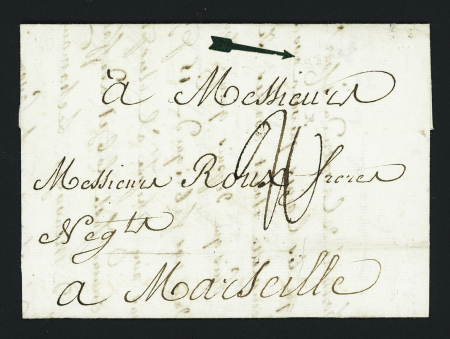 à Messieurs
Messieurs Roux freres
Negts
a Marseille